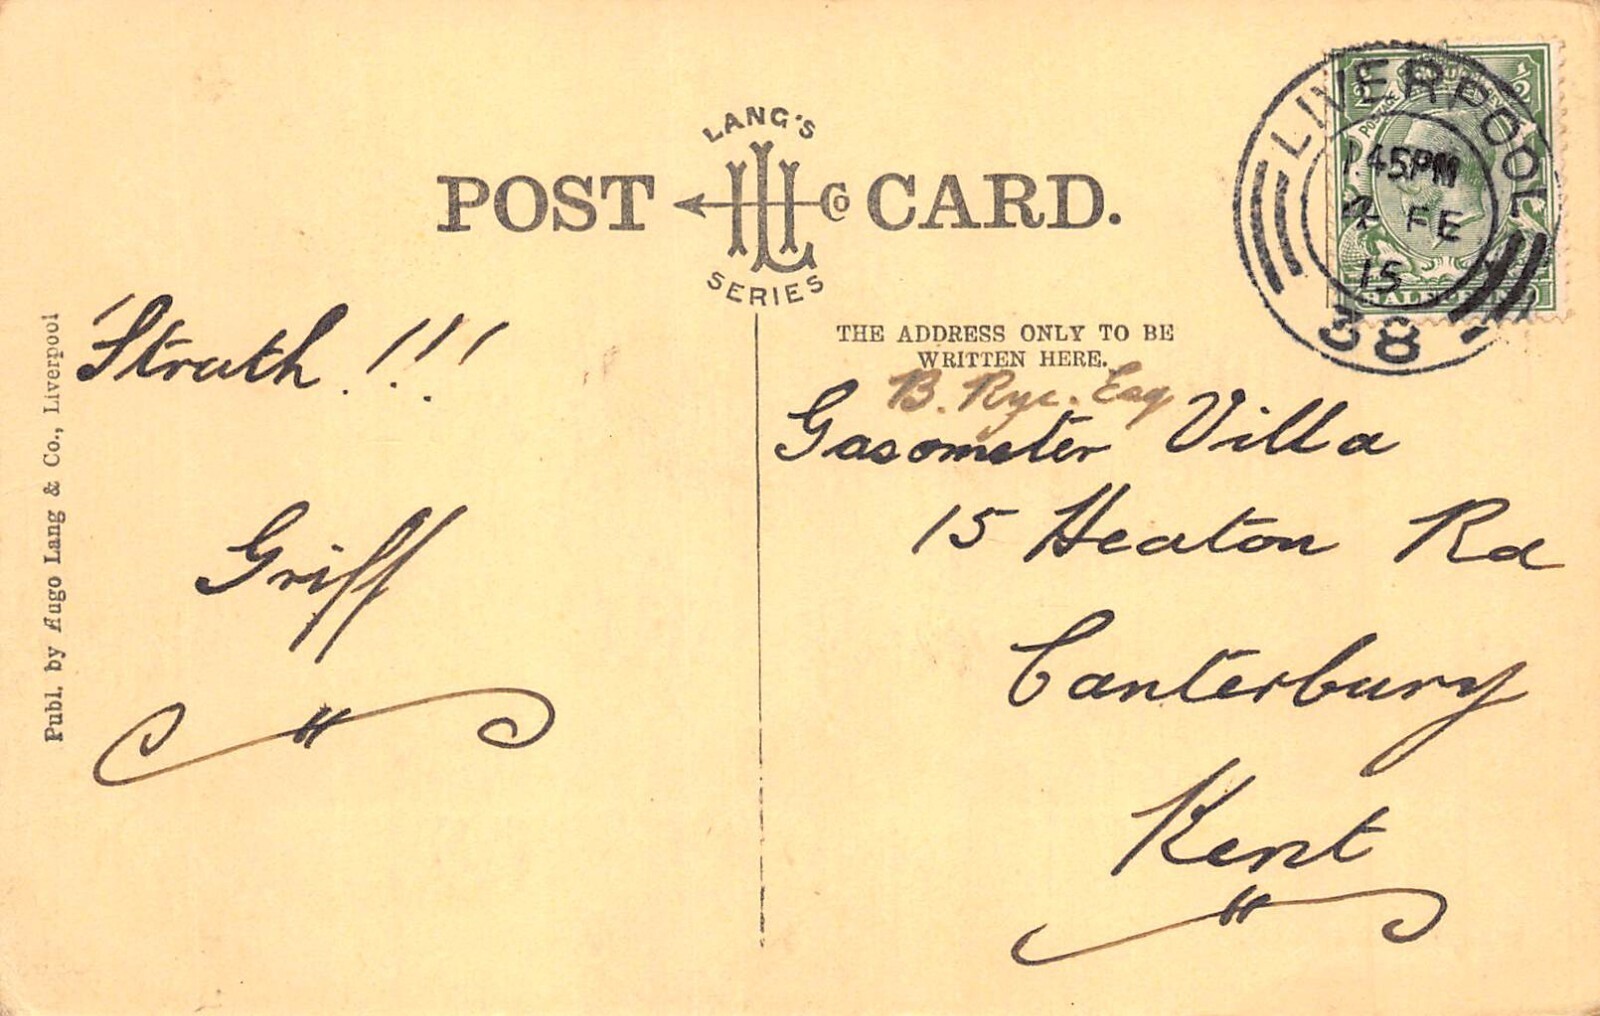 LANG'S
POST Co CARD.
SERIES
LIVERPOOL
1.45PM
4 FE
15
38
THE ADDRESS ONLY TO BE
WRITTEN HERE.
Publ. by Hugo Lang & Co., Liverpool
Strath !!!
Griff
B. Rye. Esq
Gasometer Villa
15 Heaton Rd
Canterbury
Kent